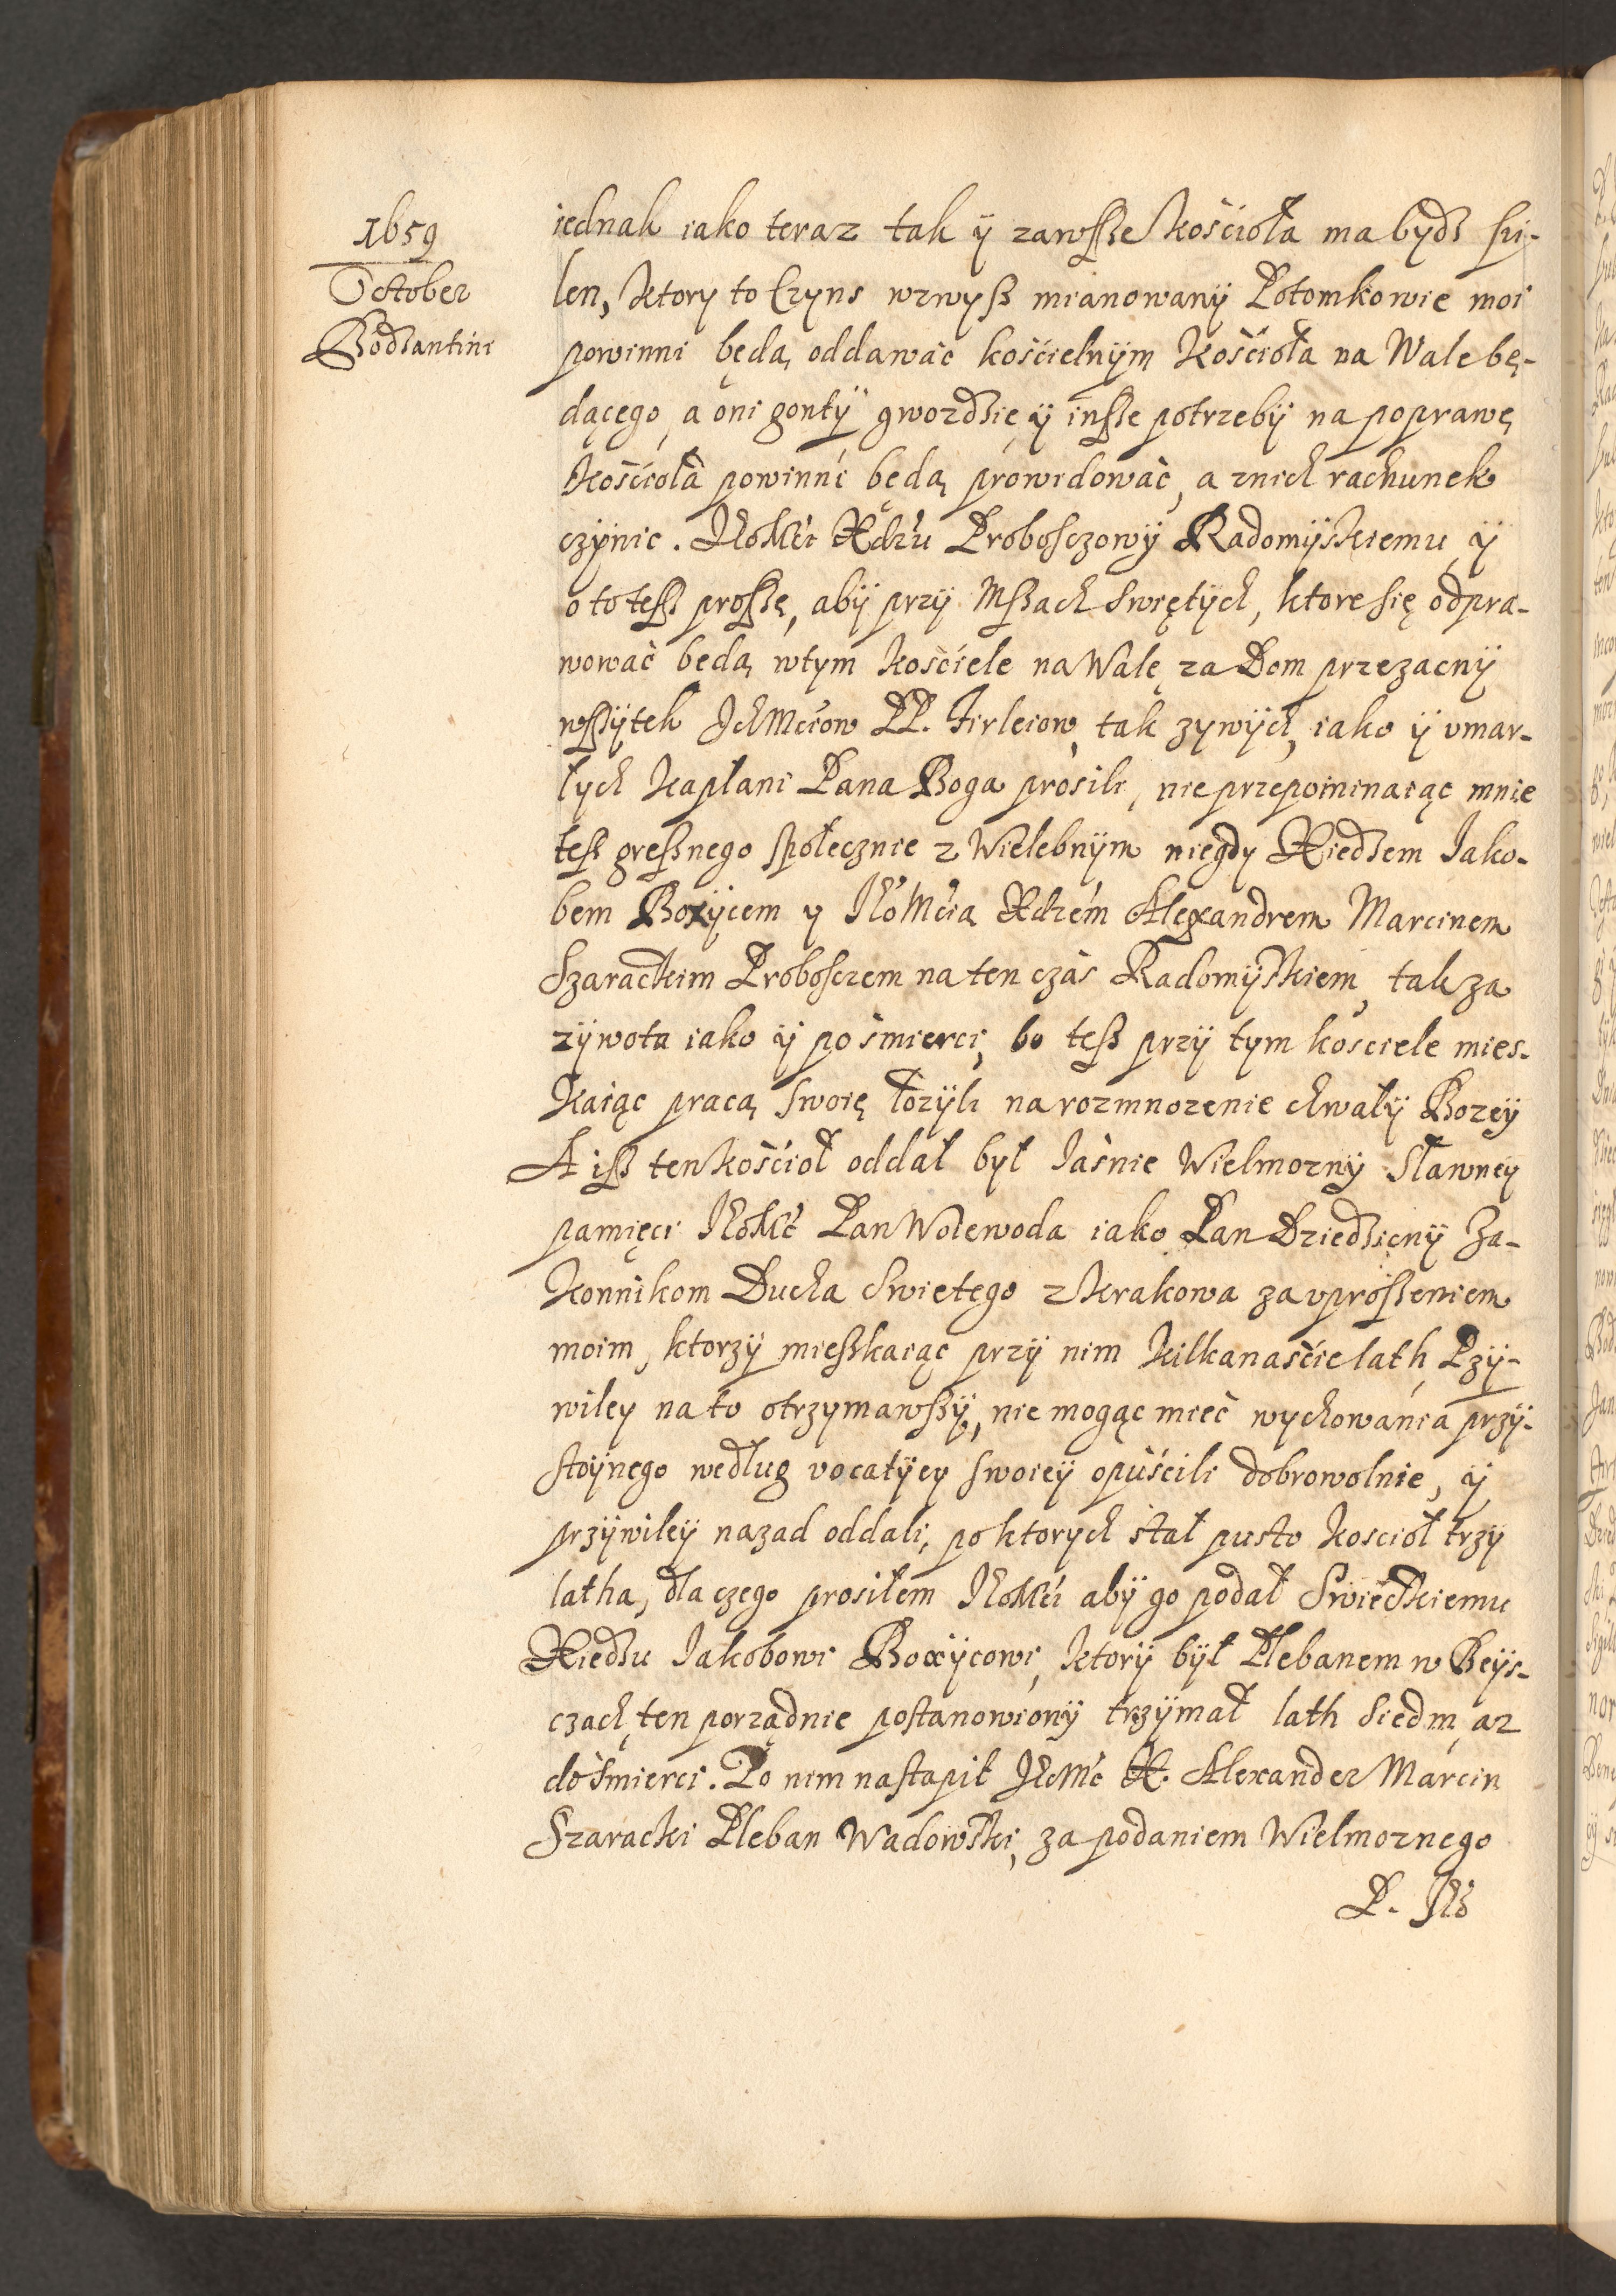 1659
October
Bodzantini
iednak iako teraz tak ÿ zawsze kościoła ma bydz pi-
len, ktory to Czyns wzwysz mianowanÿ Potomkowie moi
powinni będą oddawać kościelnÿm kościoła na Wale bę-
dącego, a oni gontÿ gwozdzie, ÿ insze potrzebÿ na poprawę
kościoła powinni będą prowidować, a znich rachunek
czÿnic. JEoMći Xdzu Proboszczowÿ RadomÿsKiemu ÿ
o to tesz proszę, abÿ przÿ Mszach Swiętÿch, ktore się odpra-
wować będą wtym kościele na Walę za Dom przezacnÿ
wszÿtek IchMciow PP. Firleiow, tak zywÿch, iako ÿ vmar-
łych kapłani Pana Boga prosili, nie przepominaiąc mnie
tesz gresznego społecznie z Wielebnÿm niegdy Xiedzem Iako-
bem Boxÿcem y JEoMcią Xdzem Alexandrem Marcinem
Szarackim Proboszczem na ten czás RadomÿsKiem, tak za
zÿwota iako ÿ po śmierci, bo tesz przÿ tym kosciele mies-
kaiąc pracą swoię łozÿli na rozmnozenie chwałÿ Bozeÿ
A isz ten kościoł oddał był Iaśnie Wielmoznÿ Sławney
pamięci JEoMć Pan Woiewoda iako Pan Dziedzicnÿ Za-
konnikom Ducha Swietego z Krakowa za vproszeniem
moim, ktorzÿ mieszkaiąc przÿ nim kilkanaście lath, Pzÿ-
wiley na to otrzymawszÿ, nie mogąc mieć wychowánia przÿ-
stoÿnego według vocatÿey swoieÿ opuścili dobrowolnie, ÿ
przÿwileÿ nazad oddali, po ktorych stał pusto kosciół trzÿ
latha, dla czego prosiłem JEoMći abÿ go podał SwieckKiemu
Xiedzu Iakobowi Boxÿcowi, ktorÿ bÿł Plebanem w Beÿs-
czach, ten porządnie postanowionÿ trzÿmał lath Siedm, az
do śmierci. Po nim nastąpił JEoMć X. Alexander Marcin
Szaracki Pleban Wadowski, za podaniem Wielmoznego
P. JEo